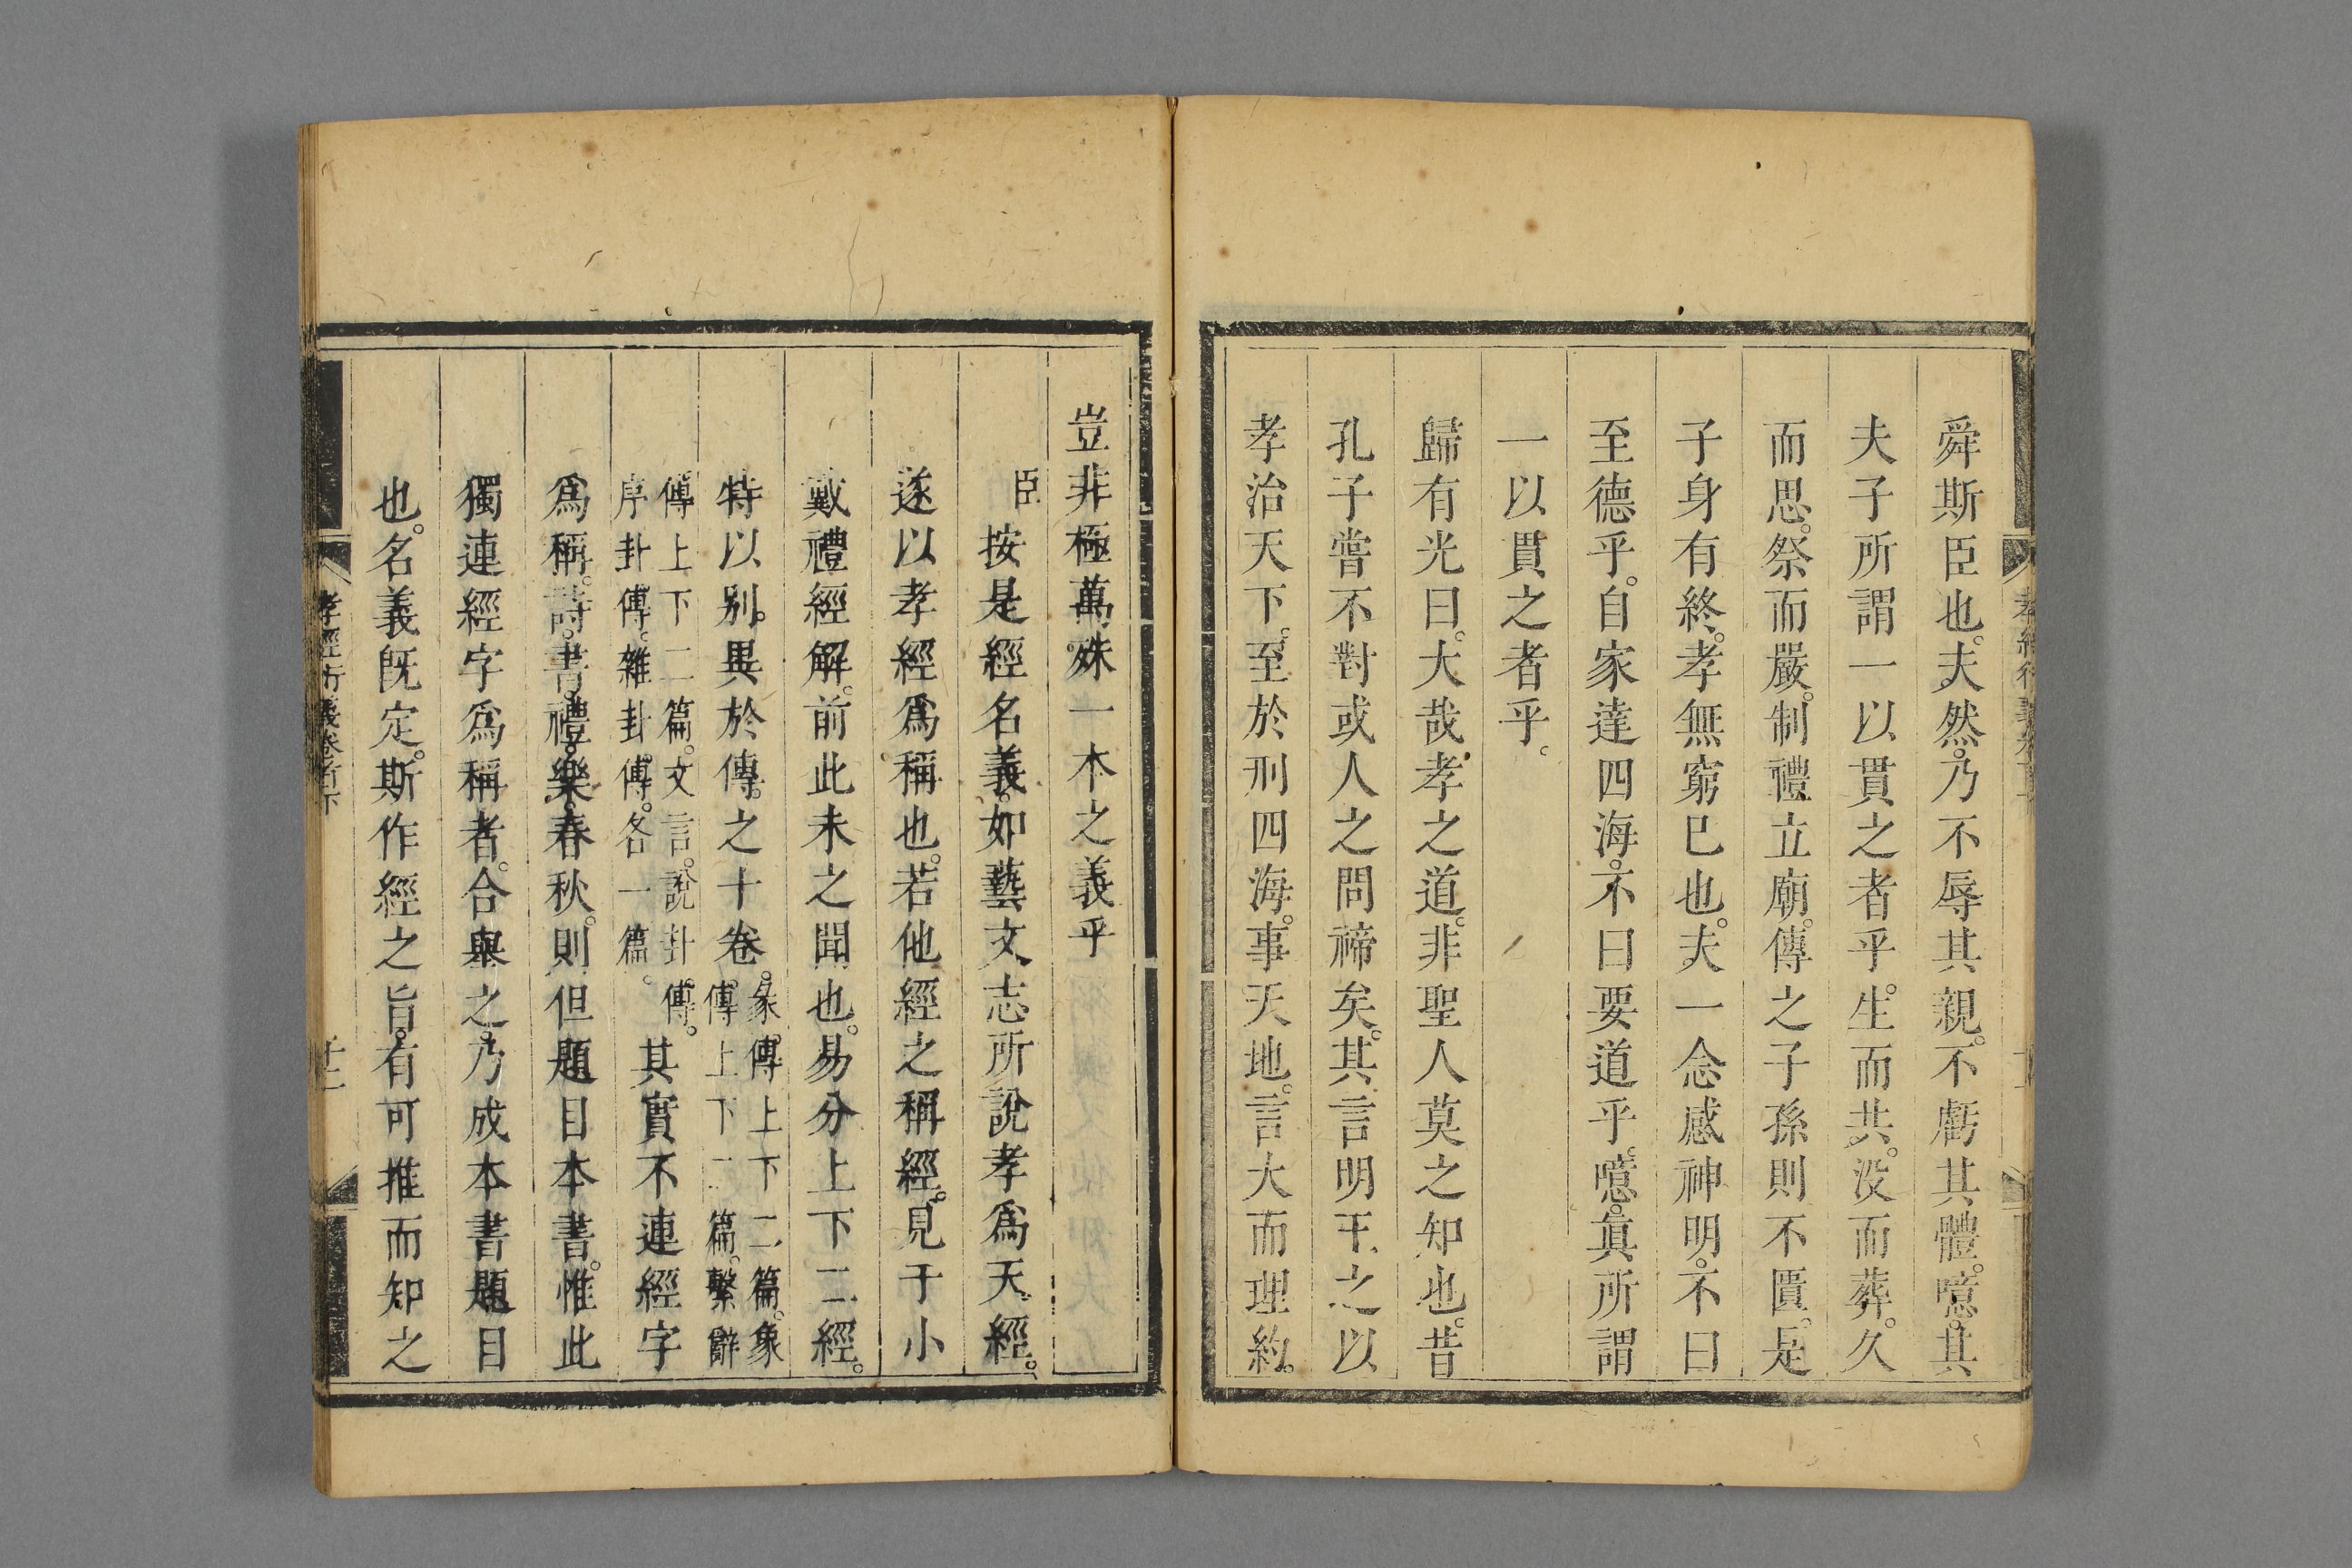 舜斯臣也。夫然。乃不辱其親。不虧其體。噫。其
夫子所謂一以貫之者乎。生而共。没而葬。久
而思。祭而嚴。制禮立廟。傳之子孫則不匱。是
子身有終。孝無窮已也。夫一念感神明。不曰
至德乎。自家達四海。不曰要道乎。噫。眞所謂
一以貫之者乎。
歸有光曰。大哉孝之道。非聖人莫之知也。昔
孔子嘗不對或人之問禘矣。其言明王之以
孝治天下。至於刑四海。事天地。言大而理約。
豈非極萬殊一本之義乎
臣按是經名義。如藝文志所說孝爲天經。
遂以孝經爲稱也。若他經之稱經。見于小
戴禮經解。前此未之聞也。易分上下二經。
特以别。異於傳。之十卷。彖。傳上下二篇。象
傳。上下二篇。繫辭
傳上下二篇。文言。說卦傳。
序卦傳。雜卦。傳。各一篇。其實不連經字
爲稱。詩。書。禮。樂。春秋。則但題目本書。惟此
獨連經字爲稱者。合舉之。乃成本書題目
也。名義既定。斯作經之旨。有可推而知之
孝經衍義卷首下